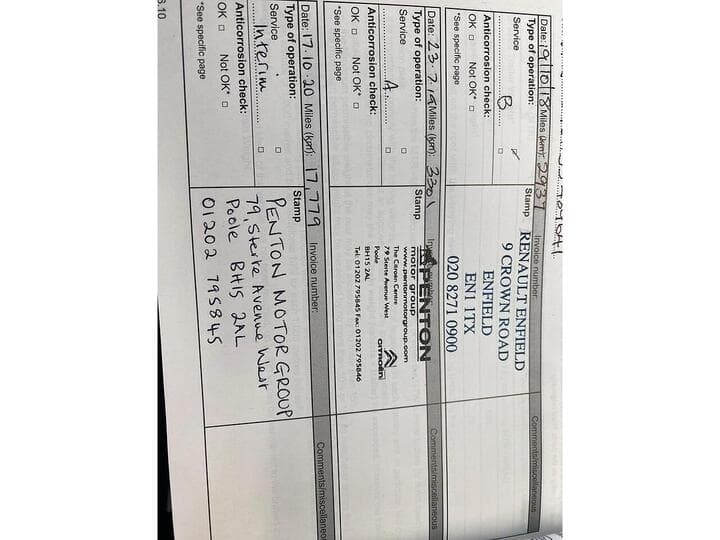 Date: 19/10/18 Miles (km): 2937 Invoice number: Comments/miscellaneous
Type of operation: Stamp
Service
B
Anticorrosion check:
OK □ Not OK* □
*See specific page
RENAULT ENFIELD
9 CROWN ROAD
ENFIELD
EN1 1TX
020 8271 0900
Date: 23. 7. 19 Miles (km): 3301 Comments/miscellaneous
Type of operation: Stamp
Service
A
Anticorrosion check:
OK □ Not OK* □
*See specific page
PENTON
motor group
www.pentonmotorgroup.com
The Citroen Centre
79 Sterte Avenue West
Poole
BH15 2AL
CITROËN
Tel: 01202 795845 Fax: 01202 795846
Date: 17.10.20 Miles (km): 17,779 Invoice number: Comments/miscellaneous
Type of operation: Stamp
Service
Interim
Anticorrosion check:
OK □ Not OK* □
*See specific page
PENTON MOTOR GROUP
79, Sterte Avenue West
Poole BH15 2AL
01202 795845